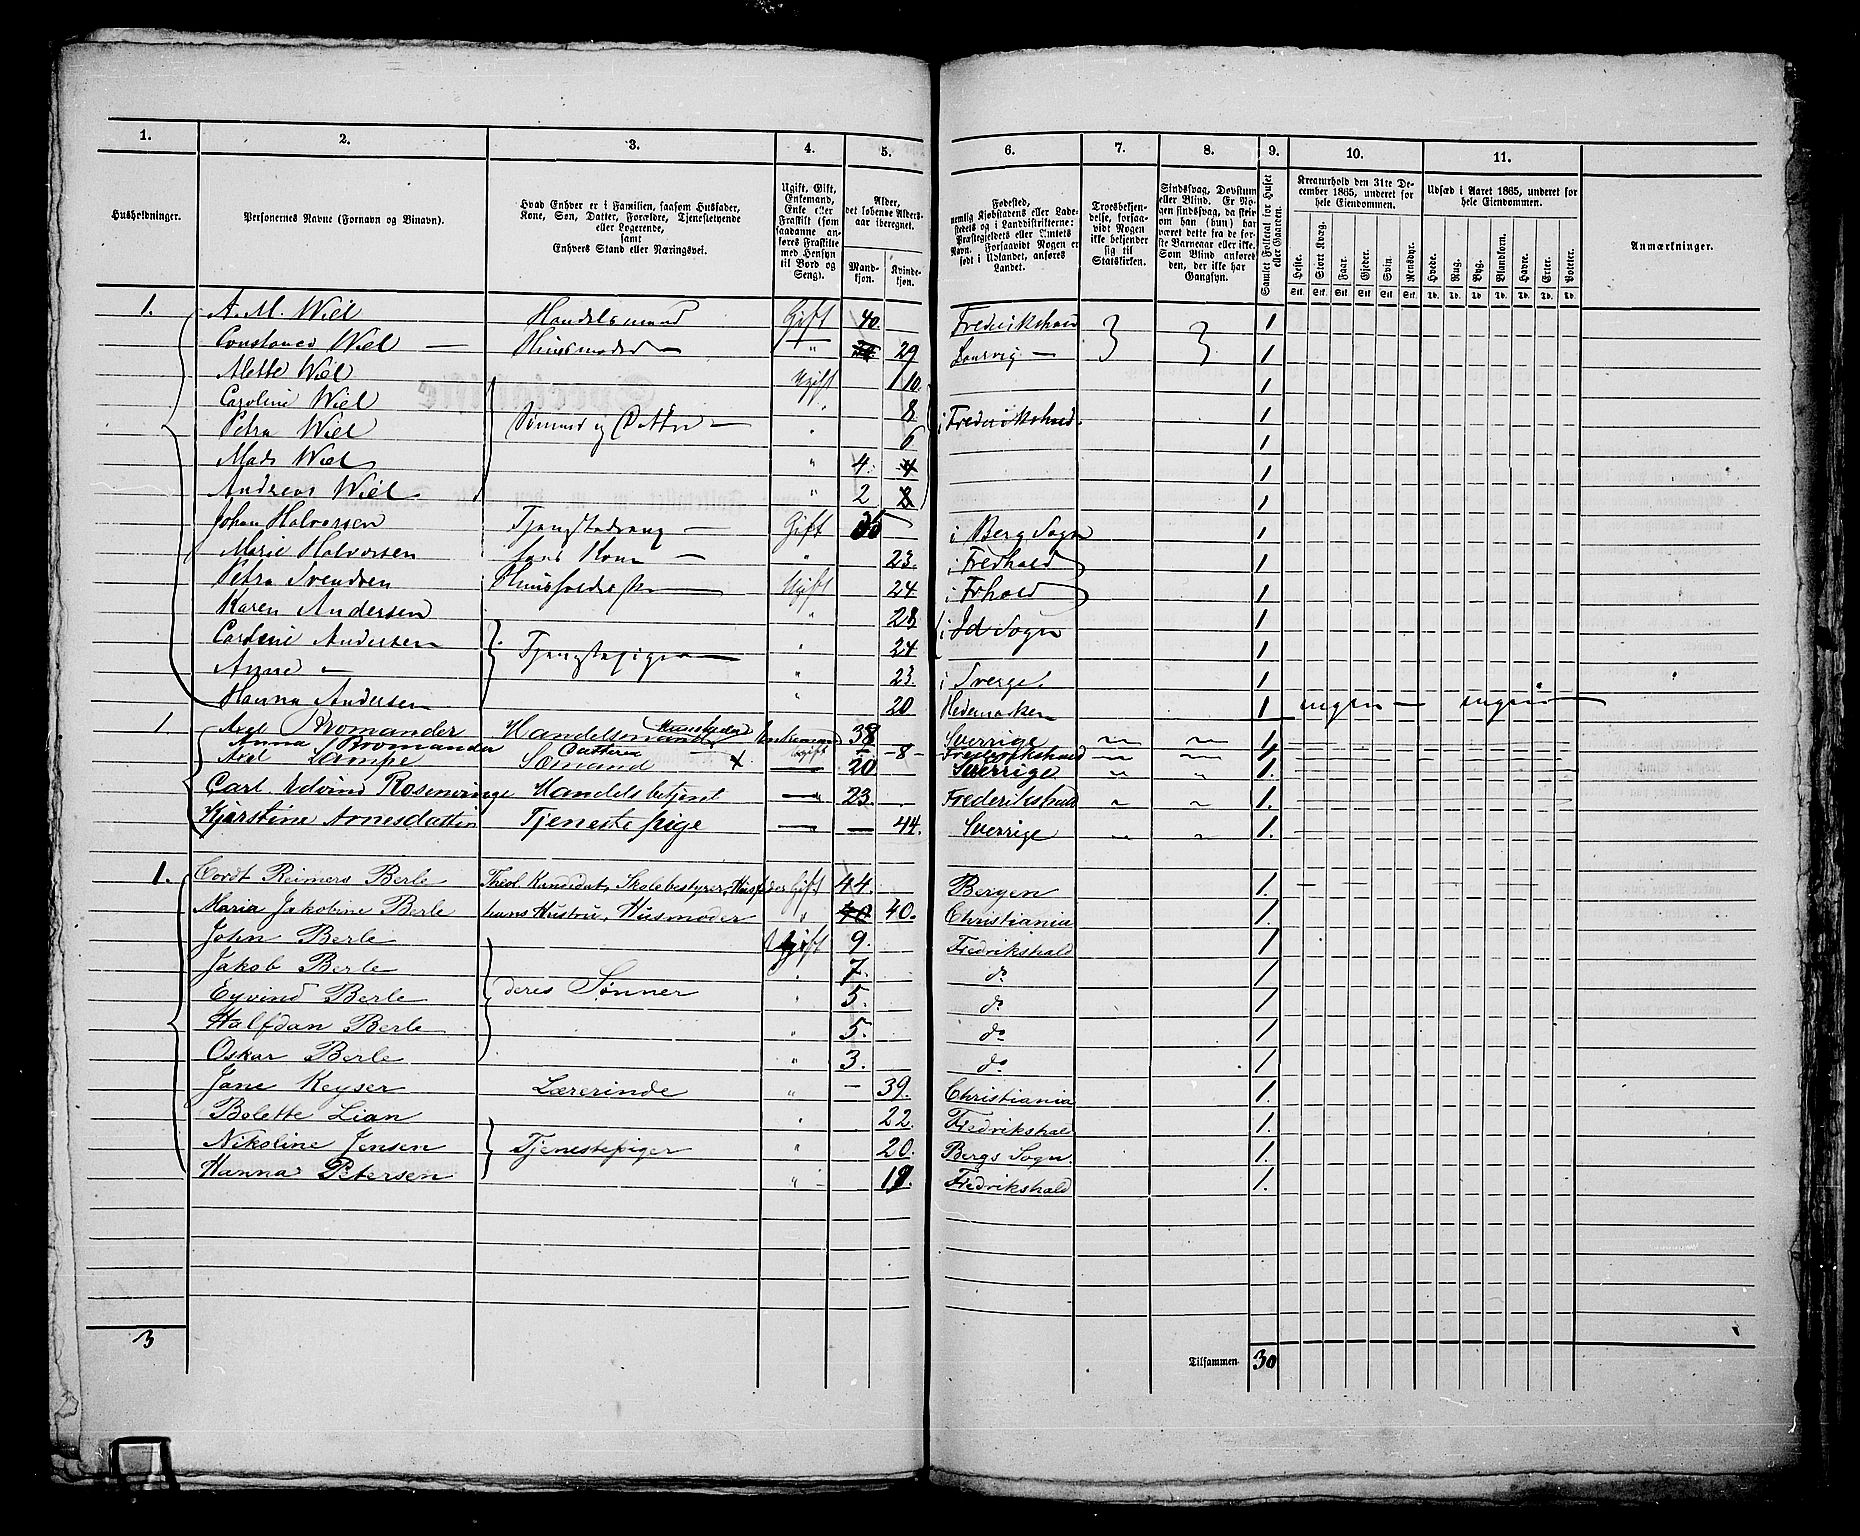 1. 2. 3. 4. 5. 6. 7. 8. 9. 10. 11.
Husholdninger.
Personernes Navne (Fornavn og Binavn).
Hvad Enhver er i Familien, saasom Husfader, Kone, Søn, Datter, Forældre, Tjenestetyende eller Logerende, samt Enhvers Stand eller Næringsvei.
Ugift, Gift, Enkemand, Enke eller Fraskilt (som saadanne anføres Fraskilte med Hensyn til Bord og Seng).
Alder, det løbende Aldersaar iberegnet.
Mandkjøn. Kvindekjøn.
Fødested, nemlig Kjøbstadens eller Ladestedets og i Landdistrikterne: Præstegjeldets eller Amtets Navn. Forsaavidt Nogen er født i Udlandet, anføres Landet.
Troesbekjendelse, forsaavidt Nogen ikke bekjender sig til Statskirken.
Sindssvag, Døvstum eller Blind. Er Nogen sindssvag, da skriv om han (hun) har været dette fra de første Barneaar eller ikke. Som Blind anføres den, der ikke har Gangsyn.
Samlet Folketal for Huset eller Gaarden.
Kreaturhold den 31te December 1865, underet for hele Eiendommen.
Heste. Stort Kvæg. Faar. Gjeder. Svin. Rensdyr.
Stk. Stk. Stk. Stk. Stk. Stk.
Udsæd i Aaret 1865, underet for hele Eiendommen.
Hvede. Rug. Byg. Blandkorn. Havre. Erter. Poteter.
Td. Td. Td. Td. Td. Td. Td.
Anmærkninger.
1. A. M. Wiel Handelsmand Gift 40 Fredrikshald 1
Constance Wiel — Huusmoder „ 29 Laurvig — 1
Alette Wiel Ugift 10 1
Caroline Wiel „ 8 i Fredrikshald 1
Petra Wiel Sønner og Døttre „ 6 1
Mads Wiel „ 4 4 1
Andreas Wiel „ 2 8 1
Johan Halvorsen Tjenestedreng — Gift 35 i Berg Sogn 1
Marie Halvorsen hans Kone — „ 23. i Fredhald 1
Petra Svendsen Ugift 24 i Frhald 1
Karen Andersen „ 28 i Id Sogn 1
Andersen Tjenestepiger — „ 24 1
Anne „ „ 23. i Sverge. 1
Hanna Andersen „ 20 Hedemarken 1 ingen — ingen —
1 Axel Bromander Handelsmand Huusfader Enkemand 38 Sverrige 1
Anna Bromander Datteren Ugift — 8 — Fredrikshald 1
Axel Lampe Sømand x — 20 Sverrige 1.
Carl Edvind Rosenvinge Handelsbetjent — 23. Frederikshald 1.
Kjerstine Arnesdatter Tjenestepige — — 44. Sverrige 1.
1. Cordt Reimers Berle Theol. Kandidat, Skolebestyrer, Husfader Gift 44. Bergen 1.
Maria Jakobine Berle hans Hustru, Husmoder „ 40 40. Christiania 1.
John Berle Ugift 9. Fredrikshald 1
Jakob Berle „ 7. do 1
Eyvind Berle deres Sønner „ 5. do 1
Halfdan Berle „ 5. do 1
Oskar Berle „ 3. do 1
Jane Keyser Lærerinde „ — 39. Christiania 1.
Bolette Lian „ 22. Fredrikshald 1.
Nikoline Jensen Tjenestepiger „ 20. Bergs Sogn. 1.
Hanna Petersen „ — 19. Fredrikshald 1.
3 Tilsammen 30